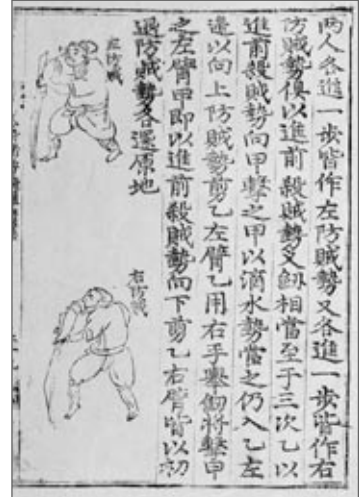 两人各進一步皆作左防賊勢又各進一步皆作右
防賊勢俱以進前殺賊勢叉劒相當至于三次乙以
進前殺賊勢向甲擊之甲以滴水勢當之仍入乙左
邊以向上防賊勢剪乙左臂乙用右手舉劒將擊甲
之左臂甲即以進前殺賊勢向下剪乙右臂皆以初
退防賊勢各還原地
左防賊
右防賊